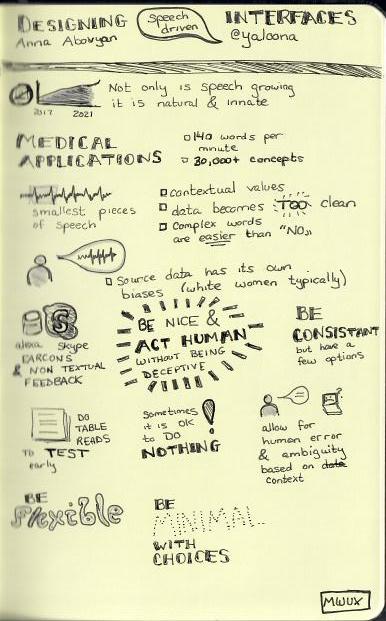 DESIGNING Speech driven INTERFACES
Anna Abovyan @yaloona
Not only is speech growing
it is natural & innate
2017 2021
MEDICAL
APPLICATIONS
140 words per
minute
30,000+ concepts
smallest pieces
of speech
contextual values
data becomes TOO clean
Complex words
are easier than "NO"
Source data has its own
biases (white women typically)
S
alexa skype
EARCONS
& NON TEXTUAL
FEEDBACK
BE NICE &
ACT HUMAN
WITHOUT BEING
DECEPTIVE
BE
CONSISTANT
but have a
few options
DO
TABLE
READS
TO TEST
early
Sometimes
it is OK
to DO
NOTHING
!
allow for
human error
& ambiguity
based on data
context
BE
Flexible
BE
MINIMAL
WITH
CHOICES
MWUX